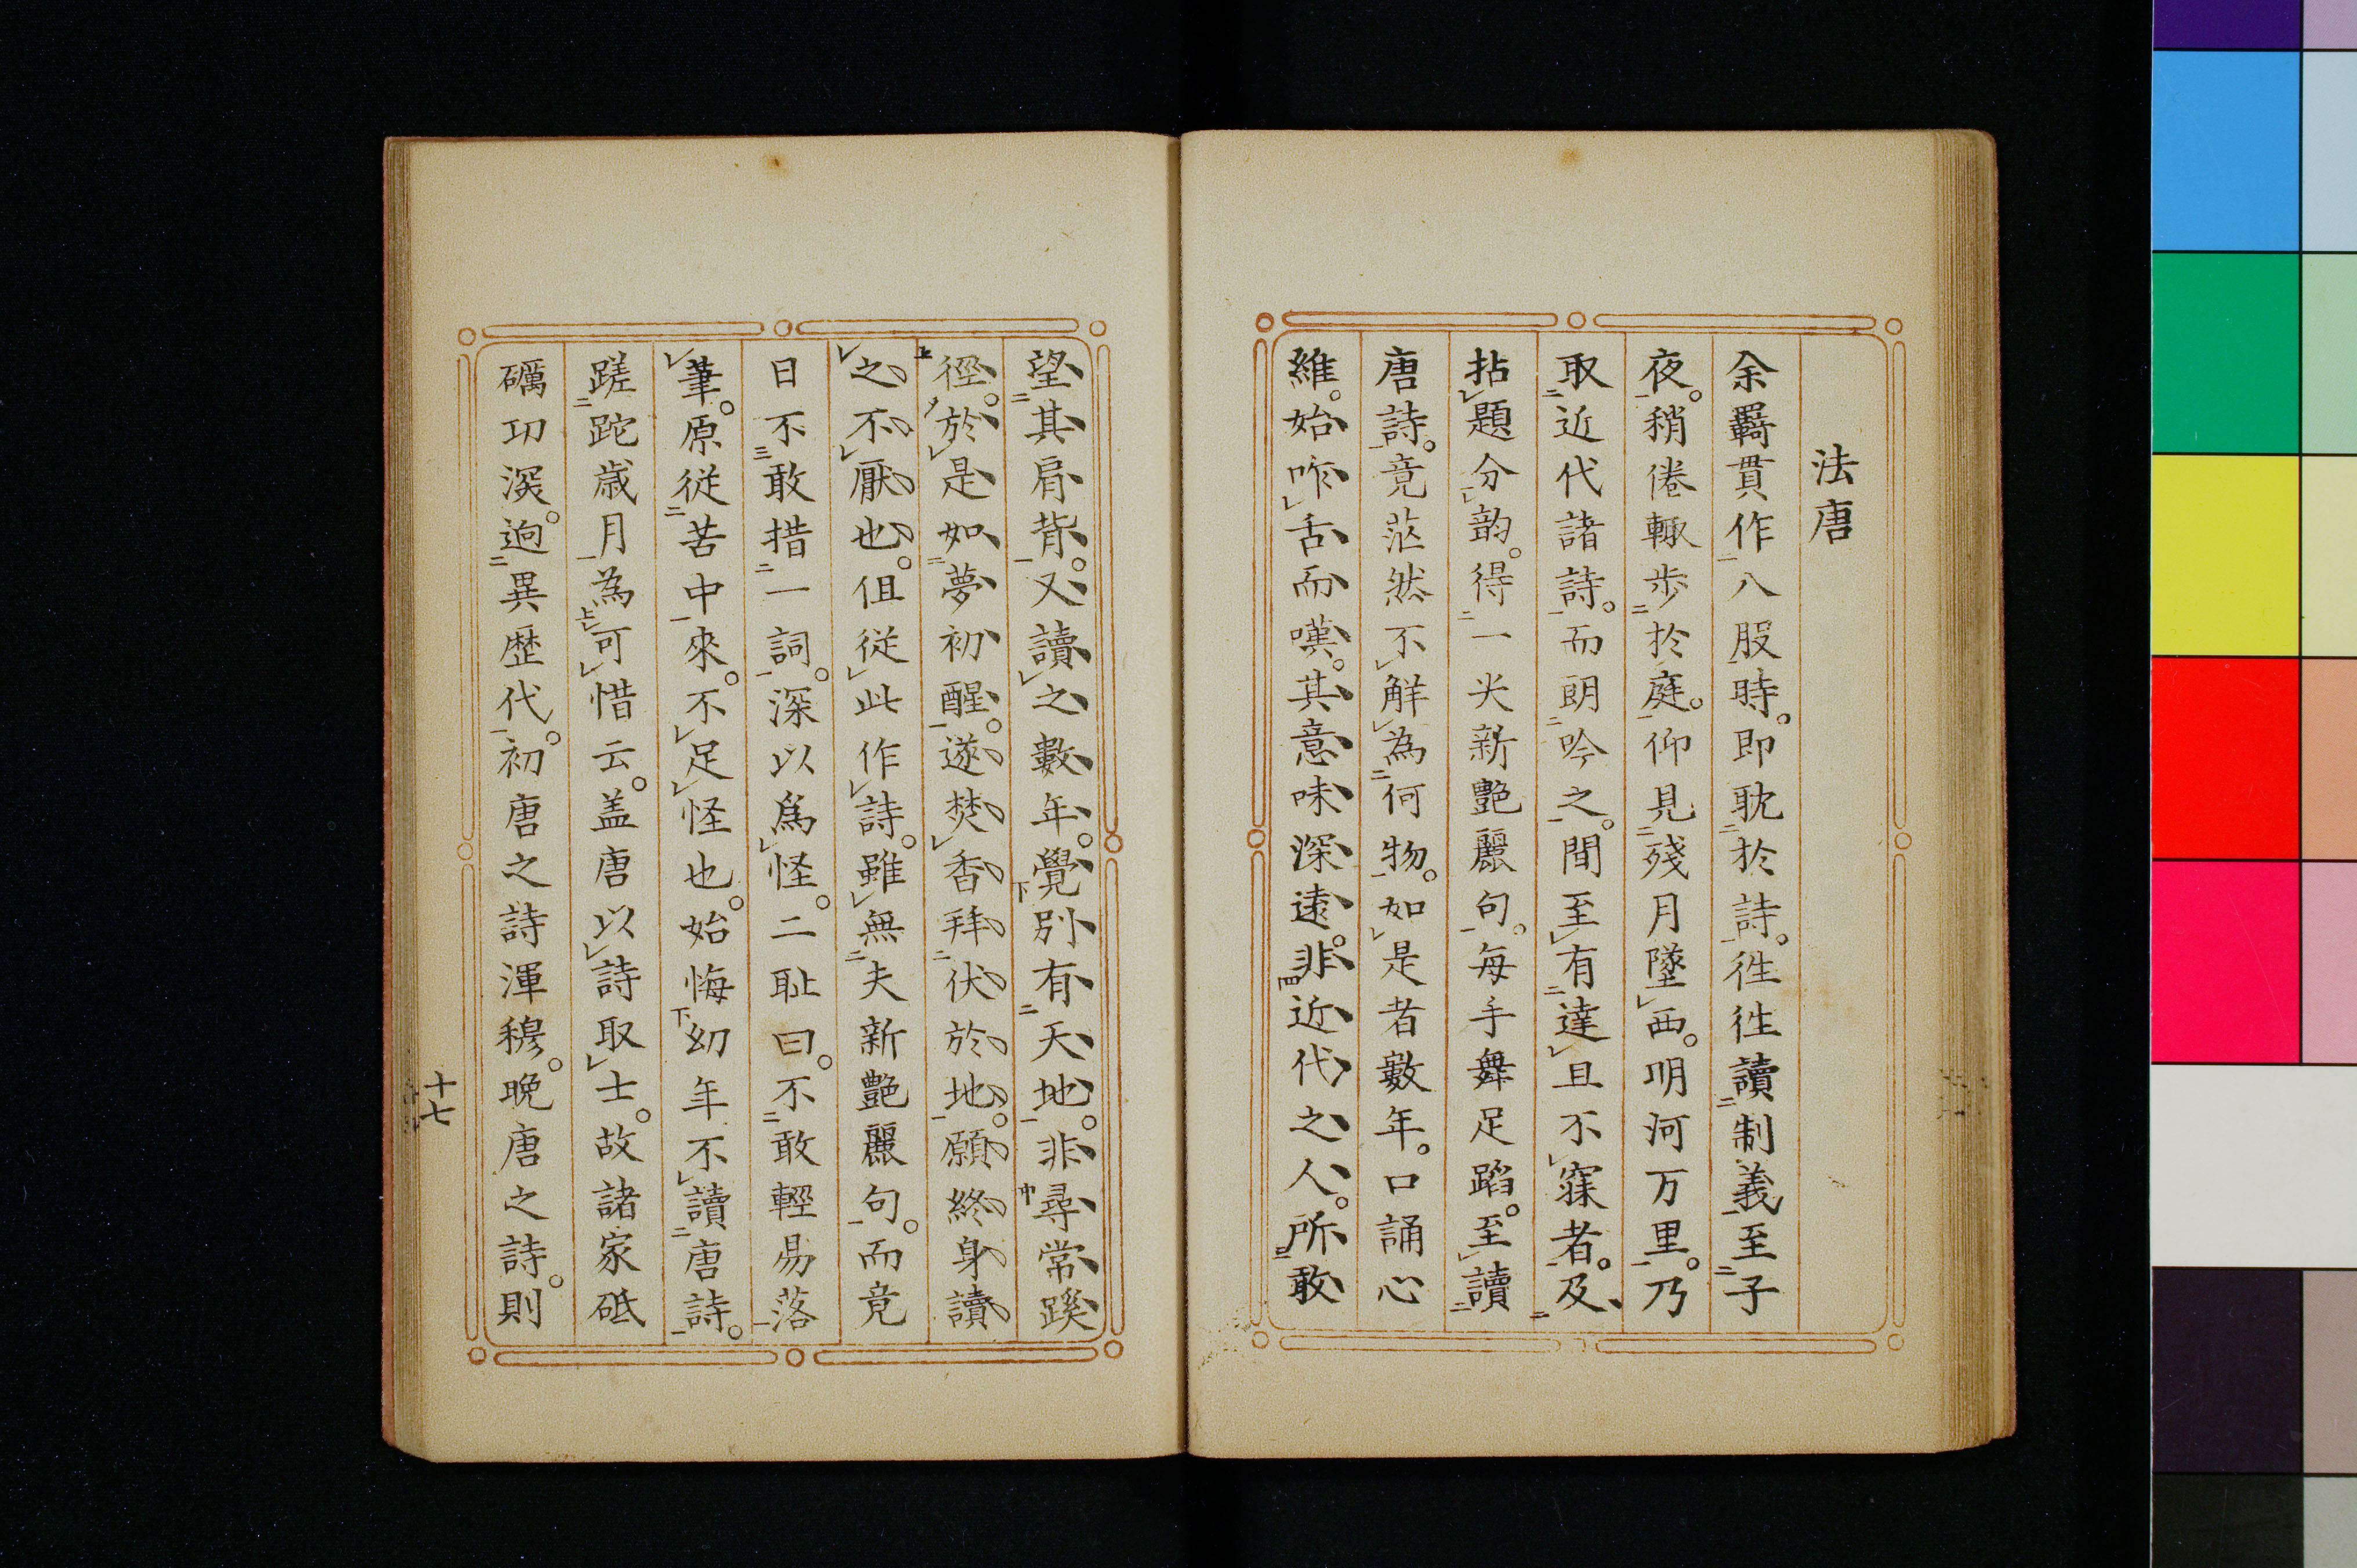 法唐
余羇貫作八股時。即耽於詩。徃徃讀制義至子
夜。稍倦輙步於庭。仰見殘月墜西。明河万里。乃
取近代諸詩。而朗吟之。間至有達旦不寐者。及
拈題分韵。得一尖新艷麗句。每手舞足蹈。至讀
唐詩。竟茫然不解為何物。如是者數年。口誦心
維。始咋舌而嘆。其意味深遠。非近代之人。所敢
望其肩背。又讀之數年。覺別有天地。非尋常蹊
徑。於是如夢初醒。遂焚香拜伏於地。願終身讀
之不厭也。但從此作詩。雖無夫新艷麗句。而竟
日不敢措一詞。深以爲怪。二耻曰。不敢輕易落
筆。原従苦中來。不足怪也。始悔幼年不讀唐詩。
蹉跎歳月為可惜云。盖唐以詩取士。故諸家砥
礪功深。逈異歴代。初唐之詩渾穆。晩唐之詩。則
十七